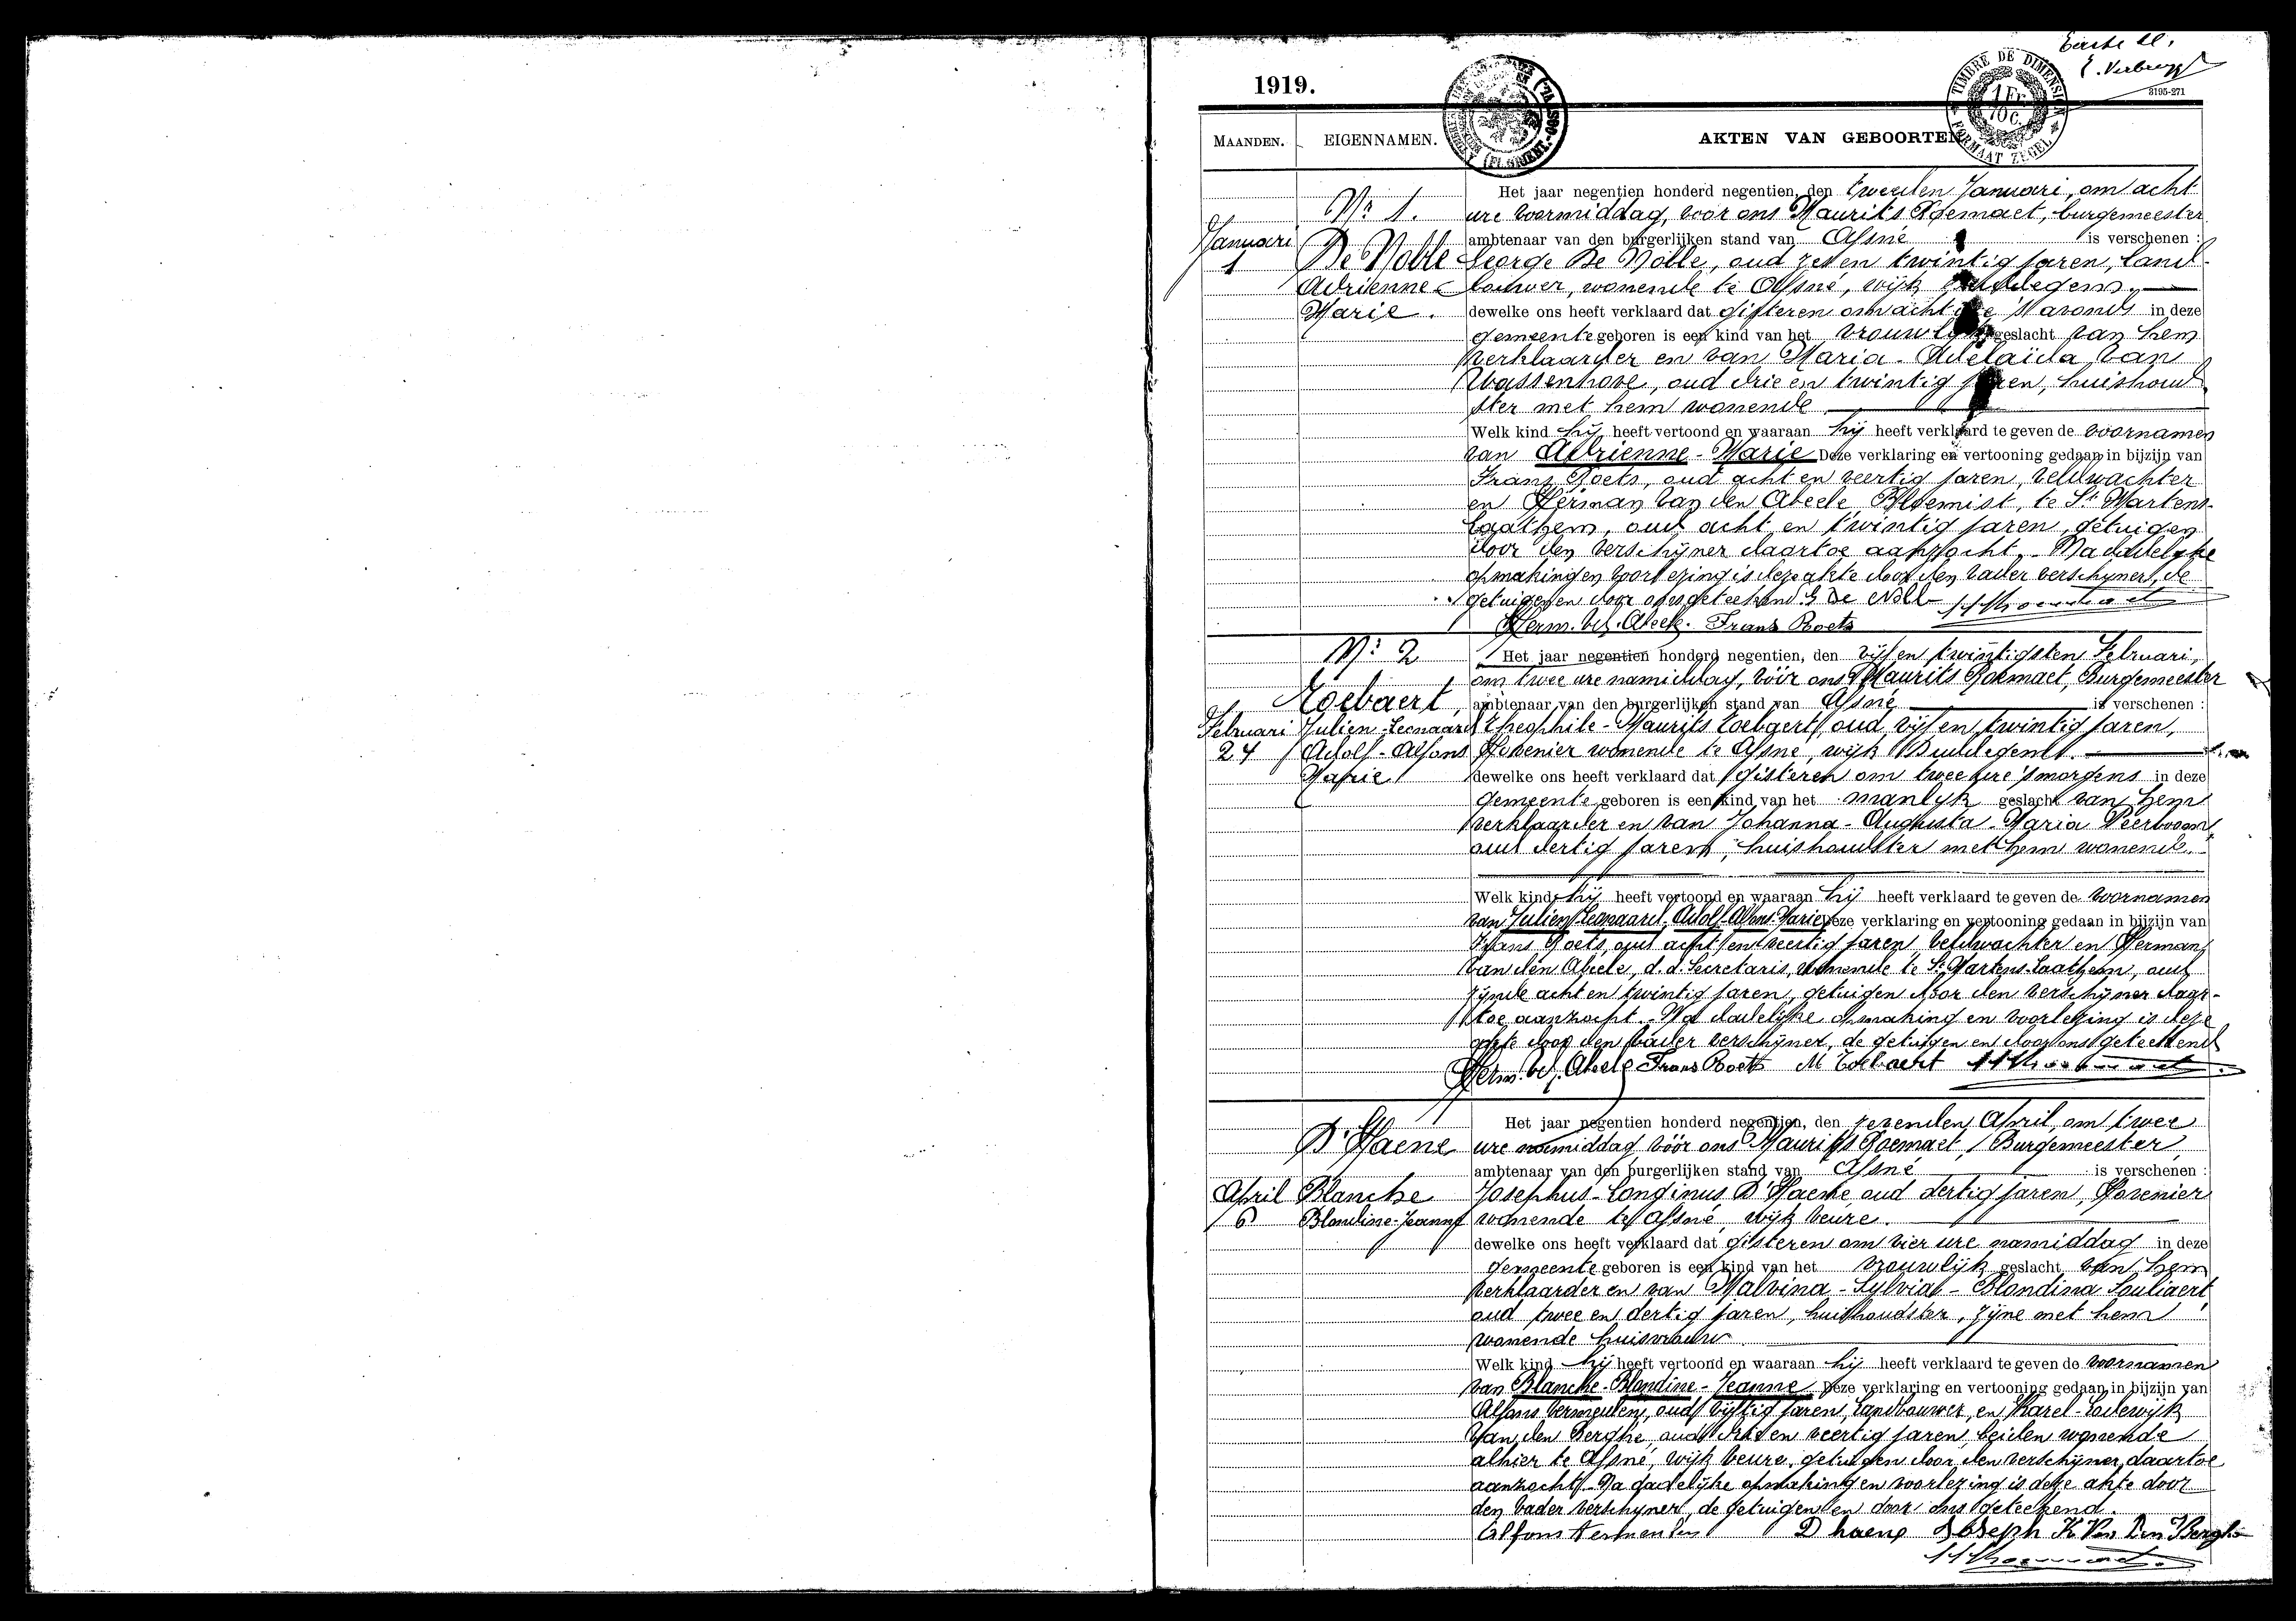 Eerste bl.
E. Verbrugg
1919.
TIMBRE DE DIMENSION
1 Fr. 10 c.
FORMAAT ZEGEL
3195-271
MAANDEN.
EIGENNAMEN.
AKTEN VAN GEBOORTEN
Nr 1.
Januari
1
De Nolle
Adrienne-
Marie.
Het jaar negentien honderd negentien, den tweeden Januari, om acht
ure voormiddag, voor ons Maurits Roemaet, burgemeester
ambtenaar van den burgerlijken stand van Afsné is verschenen :
George De Nolle, oud zeven twintig jaren, land-
bouwer, wonende te Afsné, wijk
dewelke ons heeft verklaard dat gisteren om acht ure 's avonds in deze
gemeente geboren is een kind van het vrouwlijk geslacht van hem
verklaarder en van Maria-Adelaïda Van
Wassenhove, oud drie en twintig jaren, huishoud
ster met hem wonende
Welk kind hij heeft vertoond en waaraan hij heeft verklaard te geven de voornamen
van Adrienne-Marie Deze verklaring en vertooning gedaan in bijzijn van
Frans Roets, oud acht en veertig jaren, veldwachter
en Herman Van den Abeele Bloemist, te St Martens-
Laathem, oud acht en twintig jaren, getuigen
door den verschijner daartoe aanzocht.- Na dadelijke
opmaking en voorlezing is deze akte door den vader verschijner, de
getuigen en door ons geteekend G De Noll
Herm. Vd. Abeele. Frans Roets
Nr 2
Februari
24
Loebaert,
Julien-Leonaard
Adolf-Alfons
Marie
Het jaar negentien honderd negentien, den vijf en twintigsten Februari,
om twee ure namiddag, vóór ons Maurits Roemaet, Burgemeester
ambtenaar van den burgerlijken stand van Afsné is verschenen :
Theophile-Maurits Loebaert, oud vijf en twintig jaren,
Hovenier wonende te Afsné, wijk
dewelke ons heeft verklaard dat gisteren om twee ure 's morgens in deze
gemeente geboren is een kind van het manlijk geslacht van hem
verklaarder en van Johanna-Augusta-Maria Peerboom,
oud dertig jaren, huishoudster met hem wonende.
Welk kind hij heeft vertoond en waaraan hij heeft verklaard te geven de voornamen
van Julien Leonaard-Adolf-Alfons-Marie Deze verklaring en vertooning gedaan in bijzijn van
Frans Roets, oud acht en veertig jaren veldwachter en Herman
Van den Abeele, d.d. Secretaris, wonende te St Martens-Laathem, oud
zijnde acht en twintig jaren, getuigen door den verschijner daar-
toe aanzocht.- Na dadelijke opmaking en voorlezing is deze
akte door den vader verschijner, de getuigen en door ons geteekend
Herm. Vd. Abeele Frans Roets M Loebaert
April
6
D'Haene
Blanche
Blandine-Jeanne
Het jaar negentien honderd negentien, den zevenden April, om twee
ure namiddag vóór ons Maurits Roemaet, Burgemeester,
ambtenaar van den burgerlijken stand van Afsné is verschenen :
Josephus-Longinus D'Haene, oud dertig jaren, Hovenier
wonende te Afsné, wijk Veure.
dewelke ons heeft verklaard dat gisteren om vier ure namiddag in deze
gemeente geboren is een kind van het vrouwlijk geslacht van hem
verklaarder en van Malvina-Sylvia-Blondina Souliaert,
oud twee en dertig jaren, huishoudster, zijne met hem
wonende huisvrouw
Welk kind hij heeft vertoond en waaraan hij heeft verklaard te geven de voornamen
van Blanche-Blandine-Jeanne Deze verklaring en vertooning gedaan in bijzijn van
Alfons Vermeulen, oud vijftig jaren, Landbouwer, en Karel-Lodewijk
Van den Berghe, oud drie en veertig jaren, beiden wonende
alhier te Afsné, wijk Veure, getuigen door den verschijner daartoe
aanzocht.- Na dadelijke opmaking en voorlezing is deze akte door
den vader verschijner, de getuigen en door ons geteekend.
Alfons Vermeulen D haene Joseph K. Van Den Berghe